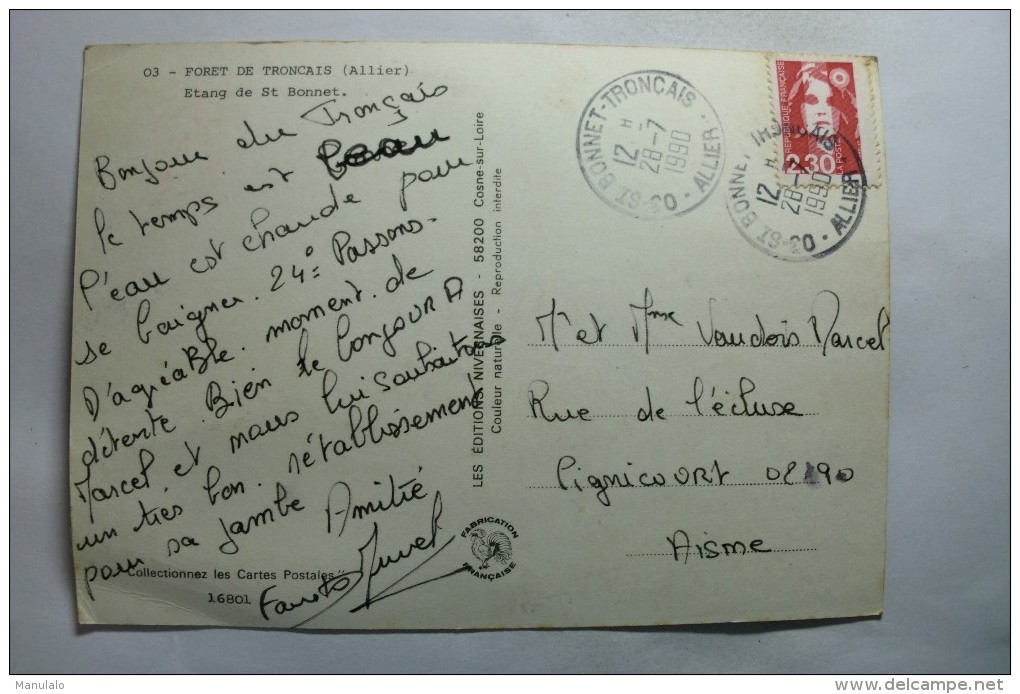 03 - FORET DE TRONCAIS (Allier)
Etang de St Bonnet.
Bonjour du Tronçais
le temps est beau
l'eau est chaude pour
se baigner. 24° Passons
D'agréable. moment. de
détente. Bien le bonjour A
Marcel et nous lui souhaitons
un très bon. rétablissement
pour sa jambe Amitié
"Collectionnez les Cartes Postales"
16801
LES ÉDITIONS NIVERNAISES - 58200 Cosne-sur-Loire
Couleur naturelle - Reproduction interdite
FABRICATION
FRANÇAISE
03-ST BONNET-TRONCAIS - ALLIER
12 H
28-7
1990
REPUBLIQUE FRANÇAISE
2,30
03-ST BONNET TRONCAIS - ALLIER
12 H
28-7
1990
Mr et Mme Vaudois Marcel
Rue de l'écluse
Pignicourt 02190
Aisme
Manulalo
delcampe.net